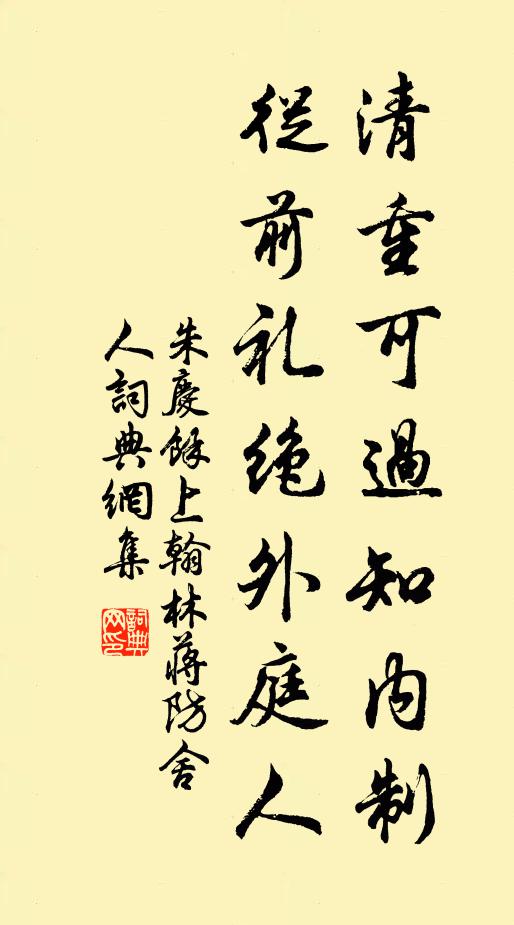 清重可過知内制
從前礼絶外庭人
朱慶餘上翰林蔣防舍
人詞典網集
詞典
网印